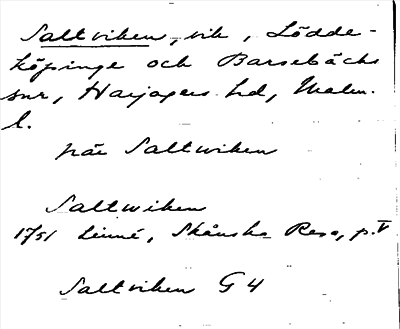 Saltviken, vik, Lödde-
köpinge och Barsebäcks
snr, Harjagers hd, Malm.
l.
når Saltwiken
Saltwiken
1751 Linné, Skånska Resa, p. V
Saltviken G4